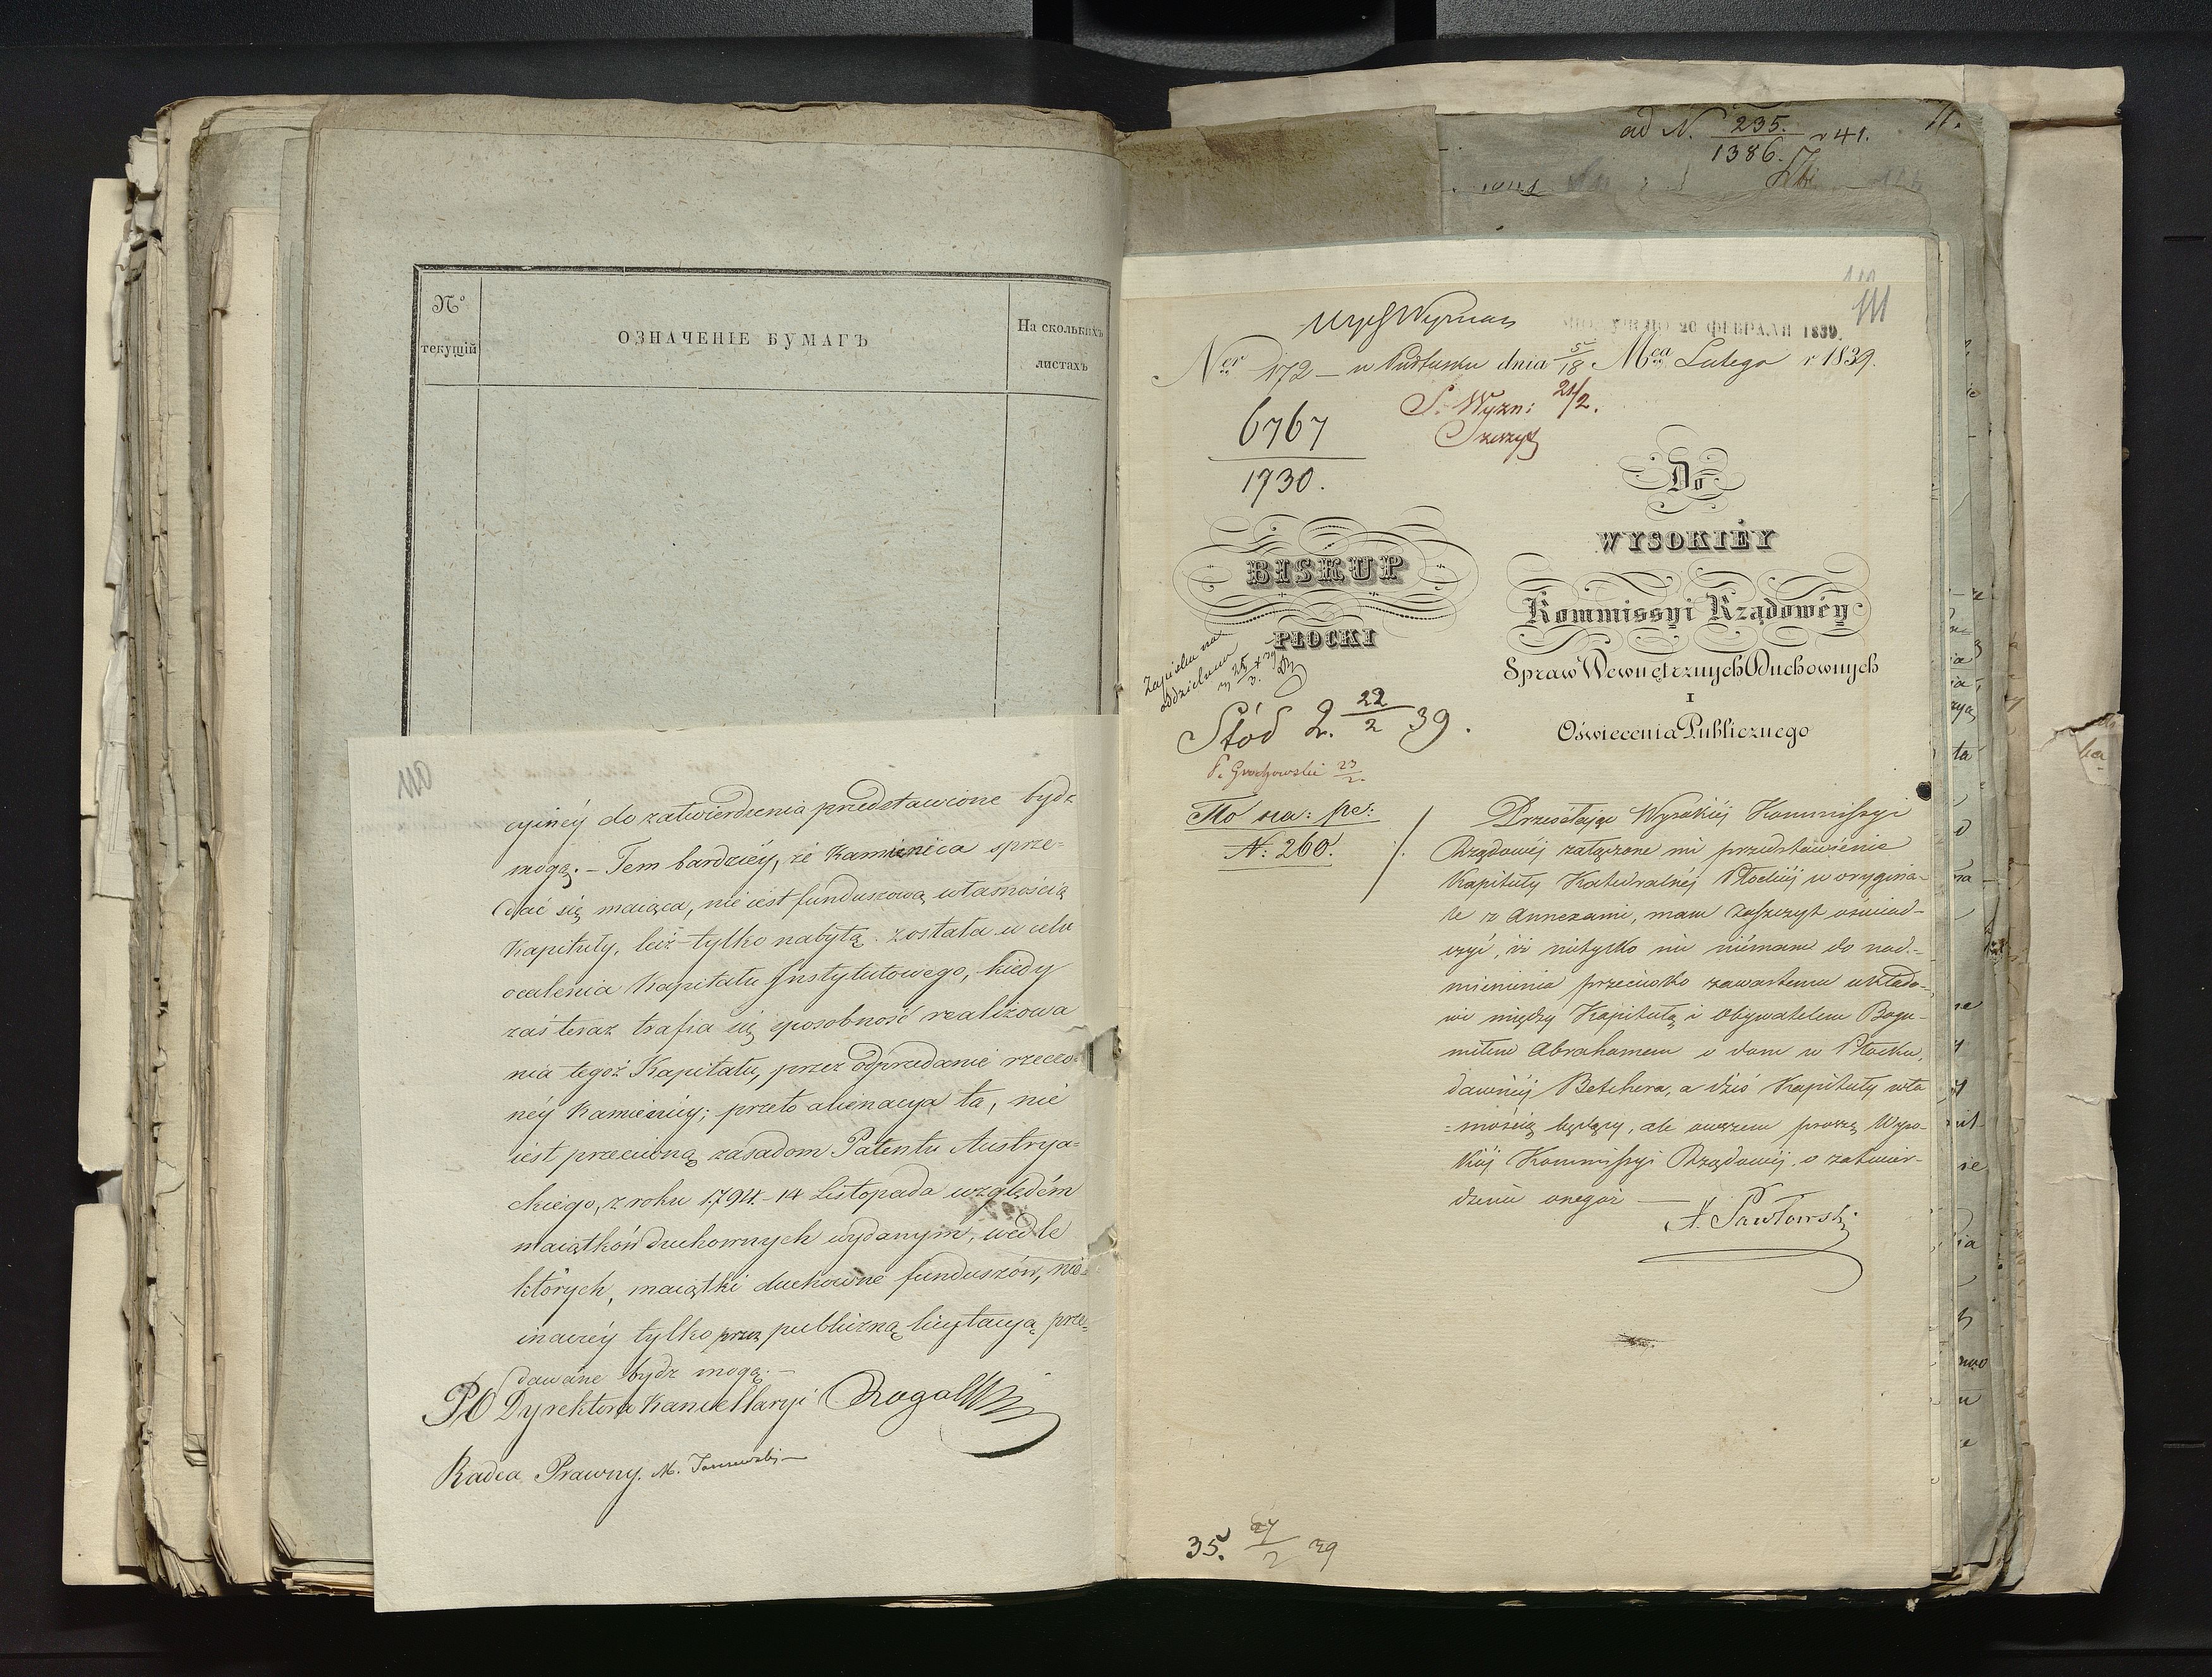 №
текущій
ОЗНАЧЕНІЕ БУМАГЪ
На сколькихъ
листахъ
110
cyinéy do zatwierdzenia przedstawione bydz
mogą. – Tem bardziéy, że Kamienica sprze=
dać się maiąca, nie iest funduszową własnością
Kapituły, lecz tylko nabytą została w celu
ocalenia Kapitału Instytutowego, kiedy
zaś teraz trafia się sposobność realizowa
nia tegoż Kapitału, przez odprzedanie rzeczo=
néy Kamienicy; przeto alienacya ta, nie
iest przeciwną zasadom Patentu Austrya=
ckiego, z roku 1794.– 14 Listopada względem
maiątków duchownych wydanym, wedle
których, maiątki duchowne funduszów, nie=
inaczéy tylko przez publiczną licytacyą prze=
dawane bydz mogą. –
PO Dyrektora Kancellaryi Rogalski
Radca Prawny. M.
ad N. 235./1386. r 41.
111
20 ФЕВРАЛЯ 1839.
Ner 172 – w Pułtusku dnia 5/18 Mca Lutego r 1839.
6767
1730.
S. Wyzn: 21/2.
Do
WYSOKIÉY
BISKUP
Kommissyi Rządowéy
PŁOCKI
Spraw Wewnętrznych Duchownych
I
Oświecenia Publicznego
22/2 39.
P. Grochowski 23/2.
N: 260.
Przesełając Wysokiéj Kommissyi
Rządowéj załączone mi przedstawienie
Kapituły Katedralnéj Płockiéj w orygina-
le z Annexami, mam zaszczyt oświad-
czyć, iż nietylko nic niémam do nad-
mienienia przeciwko zawartemu układo-
wi między Kapitułą i Obywatelem Bogu-
miłem Abrahamem o dom w Płocku,
dawniéj Betchera, a dziś Kapituły wła
=snością będący, ale owszem proszę Wyso-
kiéj Kommissyi Rządowéj o zatwier-
dzenie onegoż —
A. Pawłowski
35. 27/2 39